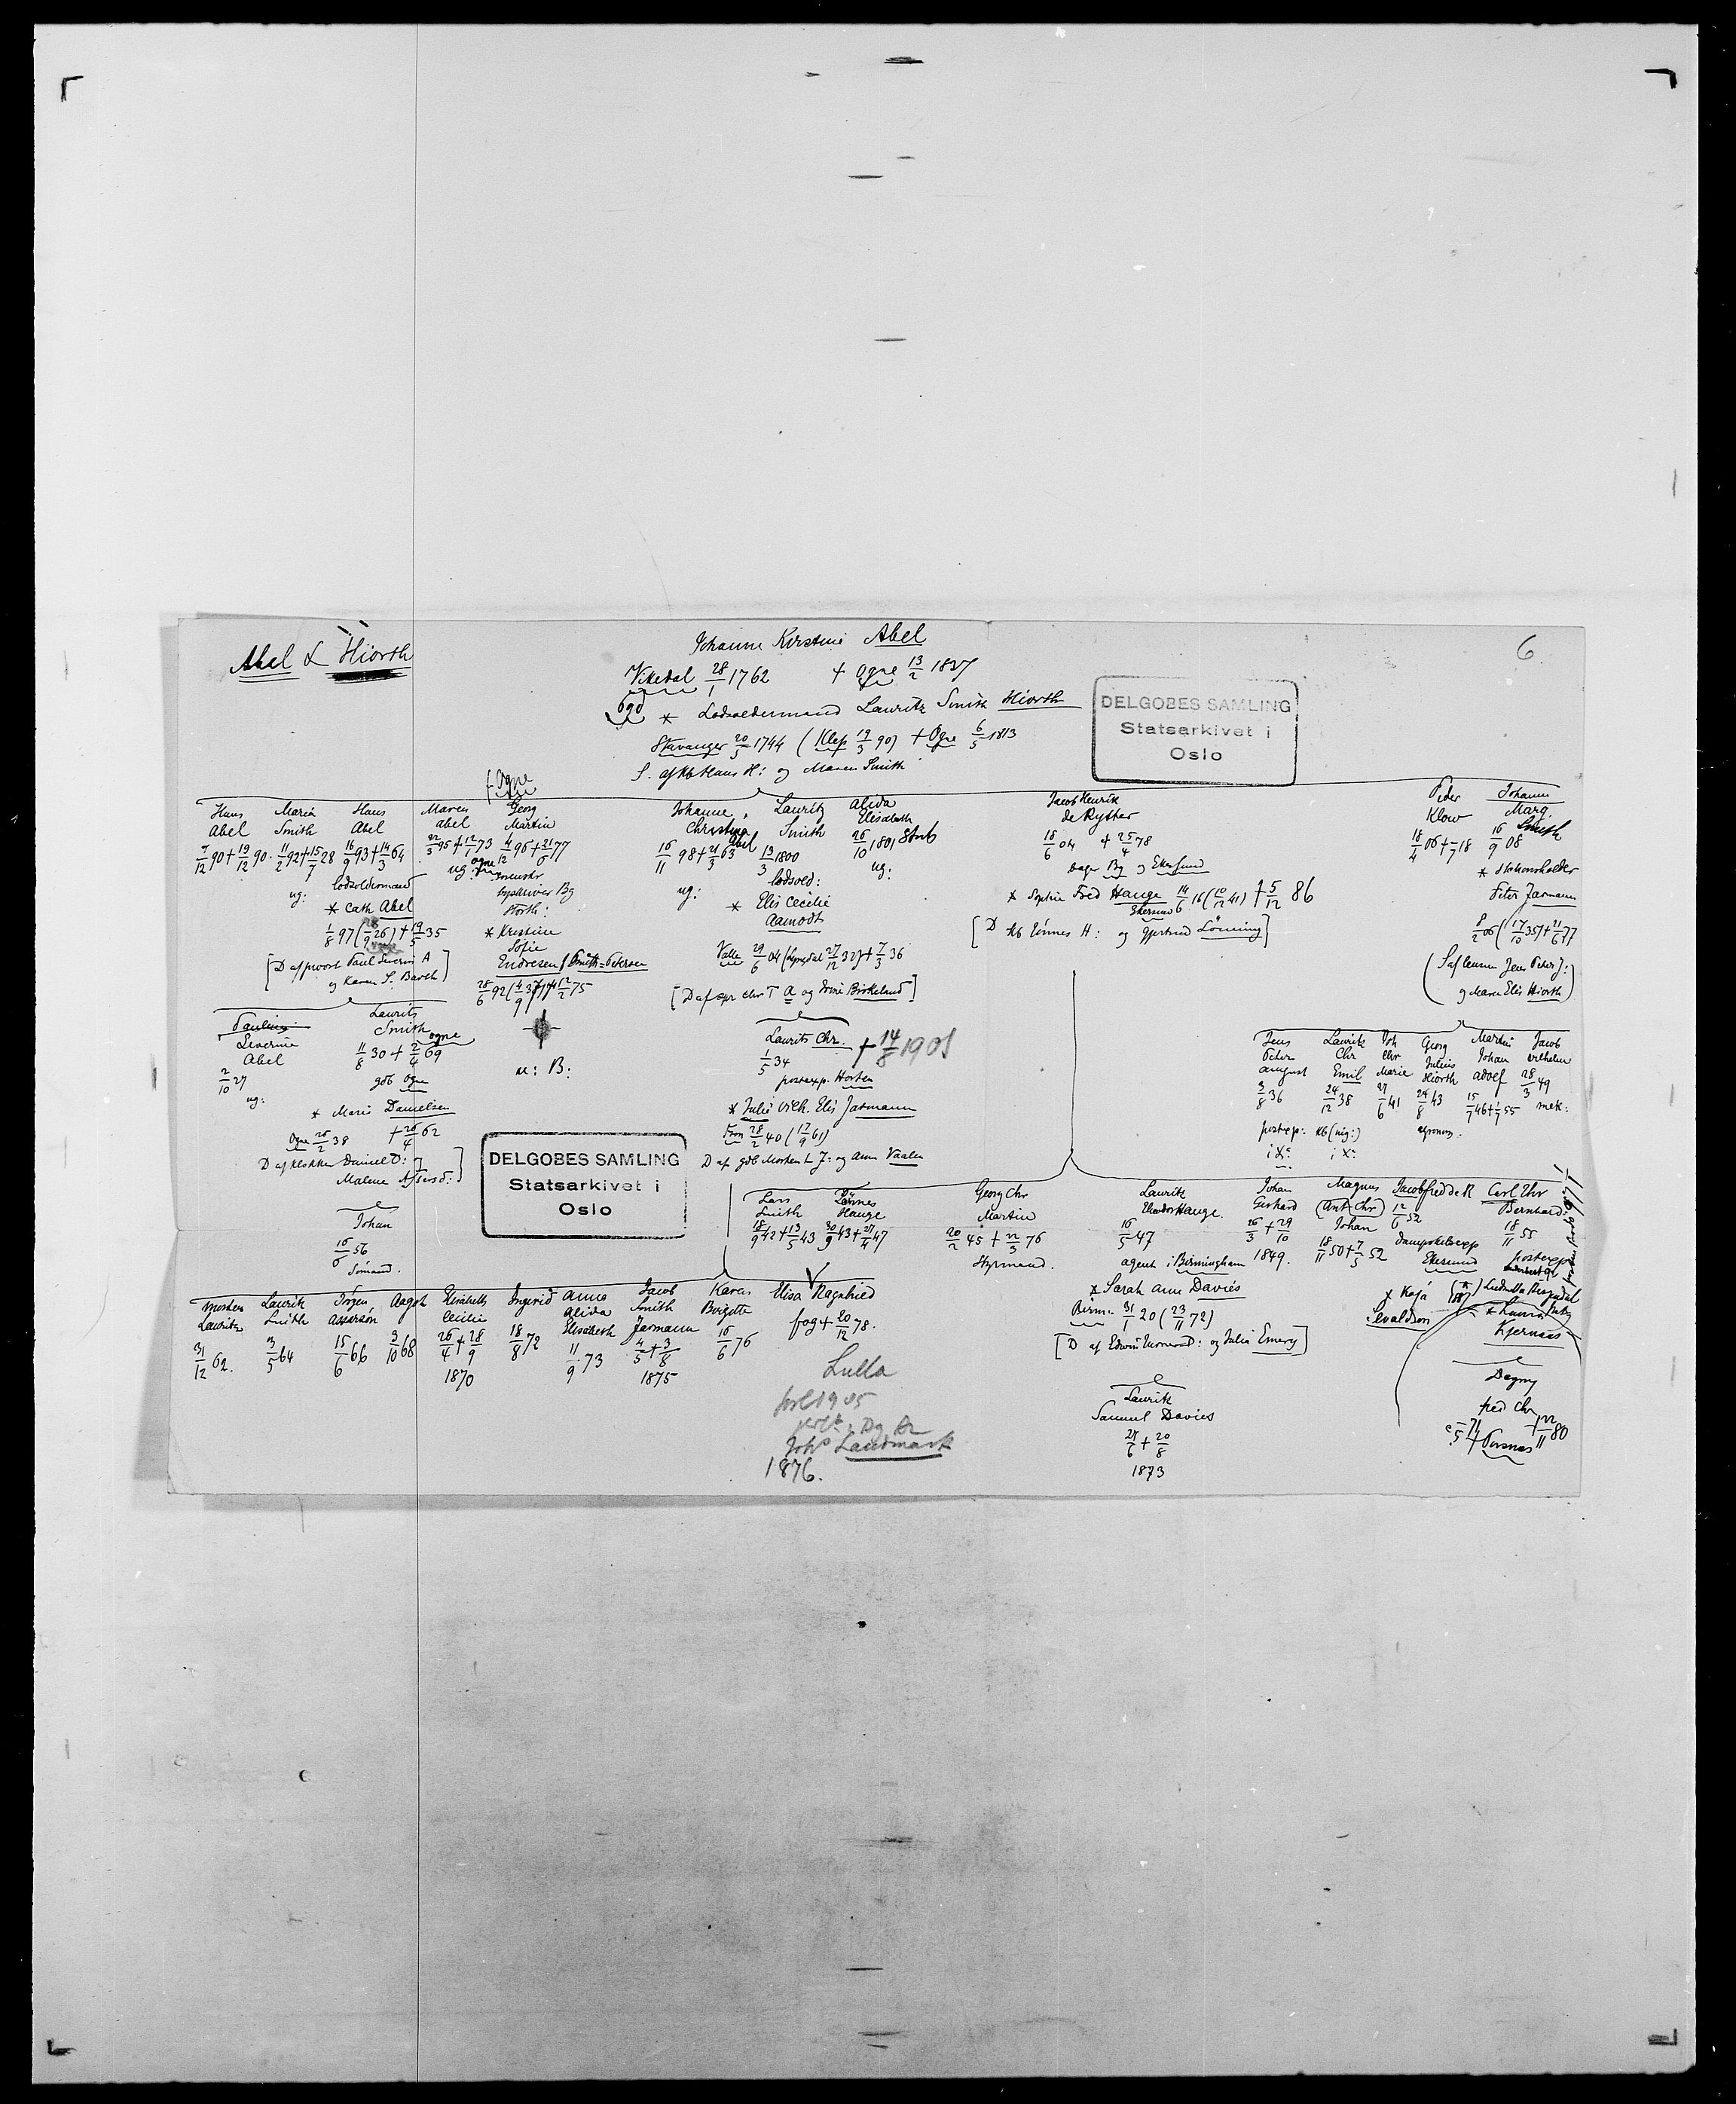 Abel & Hiorth
6
Johanne Kirstine Abel
Vikedal 28/1 1762 † Ogne 13/2 1837
* Lodsoldermand Lauritz Smith Hiorth
Stavanger 20/5 1744 (Klep 19/3 90) † Ogne 6/5 1813
S. af Kb Hans H: og Maren Smith
DELGOBES SAMLING
Statsarkivet i
Oslo
Hans Abel
7/12 90 + 19/12 90.
Maria Smith
11/2 92 + 15/7 28
ug:
Hans Abel
16/9 93 + 14/3 64
lodsoldermand
* Cath Abel
1/8 97 (28/9 26) + 19/5 35
[D af provst Paul Severin A
og Karen S. Barth]
Maren Abel
22/3 95 + 12/1 73
ug: Ogne
† Ogne
Georg Martin
4/12 96 + 21/6 77
byskriver Bg
Storth:
* Kristine Sofie
Endresen / Smith-Petersen
28/6 92 + 12/2 75
u: B:
Johanne Christine Abel
16/11 98 + 21/3 63
ug:
Lauritz Smith
13/3 1800
lodsold:
* Elis Cecilie Aamodt
Valle 29/6 04 (Lyngdal 27/12 32) + 7/3 36
[D af spr Chr T A og Birkeland]
Alida Elisabeth
26/10 1801
ug:
Jacob Henrik de Rytter
18/6 04 + 25/4 78
bager Bg og Ekersund
* Sophie Fred Hauge 14/6 16 (10/12 41) † 5/12 86
Ekersund
[D kb Tönnes H: og Gjertrud Lönning]
Peder Klow
18/4 06 + 18
Johanne Marg. Smith
16/9 08
* Stationsholder
Peter Jarmann
8/2 06 (17/10 35) + 21/6 77
(S af lensm Jens Peter J:
og Maren Elis Hiorth)
Pauline Severine Abel
2/10 27
ug:
Laurits Smith
11/8 30 + 2/4 69 Ogne
gdb Ogne
* Maris Danielsen
Ogne 26/2 38 + 26/4 62
D af klokker Daniel D: og
Malene Assersd:]
Johan
16/6 56
Sömand.
Laurits Chr.
1/5 34
† 14/8 1908
postexp. Horten
* Julie Vilh. Elis Jarmann
28/2 40 (17/9 61)
D af gdb Morten L J: og Ann Vaalen
DELGOBES SAMLING
Statsarkivet i
Oslo
Jens Peter August
3/8 36
postexp:
Laurits Chr Emil
24/12 38
kb (ug:)
i Xa
Joh Chr Marie
27/6 41
Georg Julius Hiorth
24/8 43
agronom.
Martin Johan Adolf
15/7 46 + 1/7 55
Jacob Wilhelm
28/3 49
mek:
Lars Smith
18/9 42 + 13/5 43
Tönnes Hauge
30/9 43 + 27/4 47
Georg Chr Martin
20/2 45 + 22/3 76
Styrmand.
Lauritz Theodor Hauge
16/5 47
agent i Birmingham
* Sarah Ann Davies
Birm: 31/1 20 (23/11 72)
[D af Edwin D: og Julia Emery]
Johan Gerhard
26/3 + 29/10
1849.
Magnus (Ant Chr) Johan
18/11 50 + 7/5 52
Jacob fred de R
12/6 52
dampskibsexp
Ekersund
* Kaja
Carl Chr Bernhard
18/11 55
postexp
Kjernaas
Dagny
fred Chr
Morten Lauritz
31/12 62.
Laurits Smith
3/5 64
Jörgen Asserson
15/6 66
Aagot
3/10 68
Elisabeth Cecilie
26/4 + 28/9
1870
Ingerid
18/8 72
Anna Alida Elisabeth
11/9 73
Jacob Smith Jarmann
4/5 + 3/8
1875
Karen Birgitte
16/6 76
Elisa Ragnhild
f og + 20/12 78.
Lulla
forl 1905
Johs Landmark
1876.
Laurits Samuel Davies
27/6 + 20/8
1873